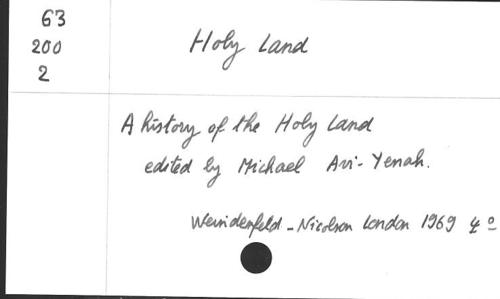 63
200
2
Holy Land
A history of the Holy Land
edited by Michael Avi-Yenah.
Weindenfeld - Nicolson London 1969 4º